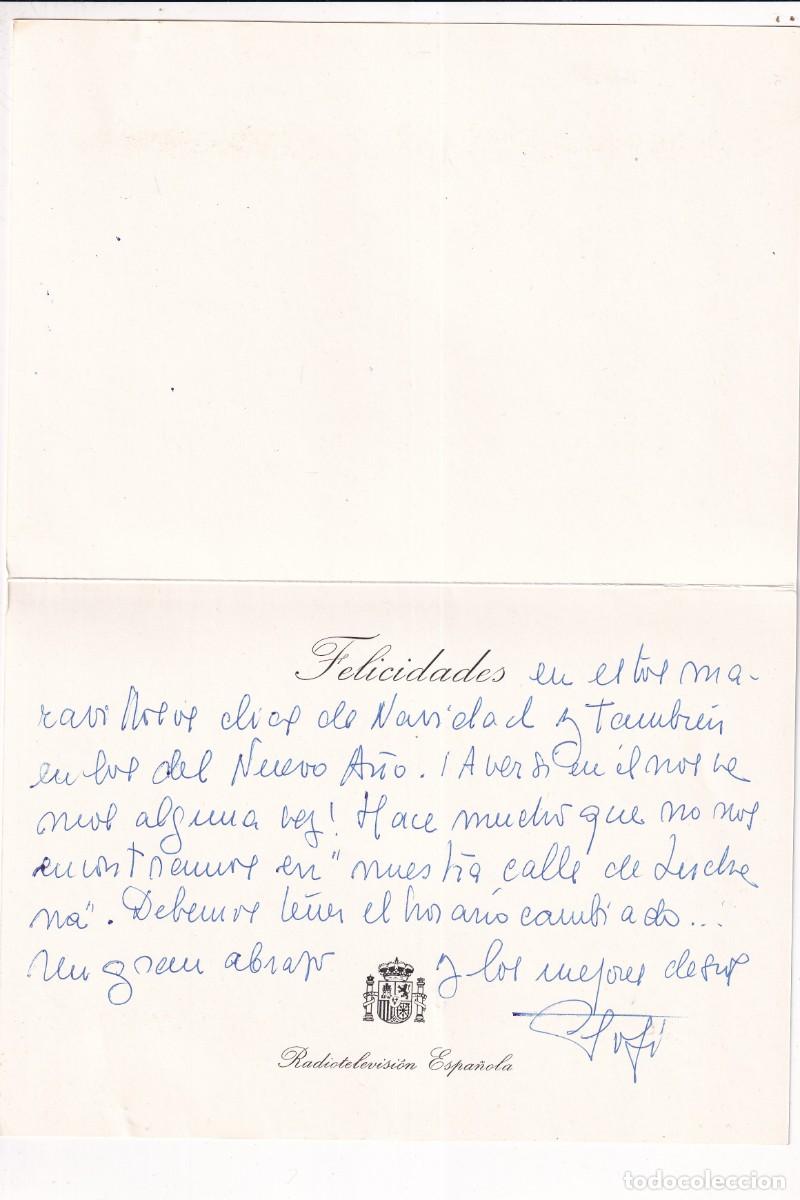 Felicidades en estos ma-
ravillosos dias de Navidad y también
en los del Nuevo Año. ¡A ver si en él nos ve
mos alguna vez! Hace mucho que no nos
encontramos en "nuestra calle de
na". Debemos tener el horario cambiado...
Un gran abrazo y los mejores deseos
Radiotelevisión Española
todocoleccion